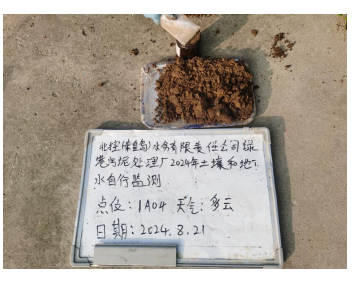 北控(秦皇岛)水务有限责任公司绿
港污泥处理厂2024年土壤和地下
水自行监测
点位: 1A04 天气: 多云
日期: 2024.8.21